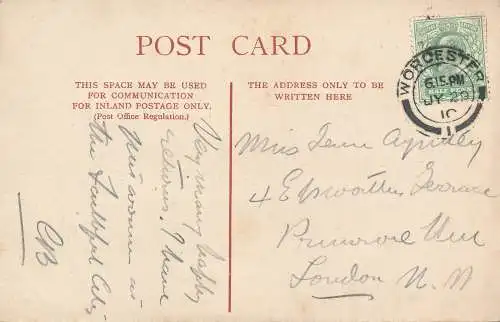 POST CARD
THIS SPACE MAY BE USED
FOR COMMUNICATION
FOR INLAND POSTAGE ONLY.
(Post Office Regulation.)
Very many happy
returns. I have
this winner as
the Faithful City
CB
THE ADDRESS ONLY TO BE
WRITTEN HERE
WORCESTER
6.15 PM
JY 28
10
1
HALF PENNY
Miss Fenn
4 Epworth Terrace
Primrose Hill
London N.W